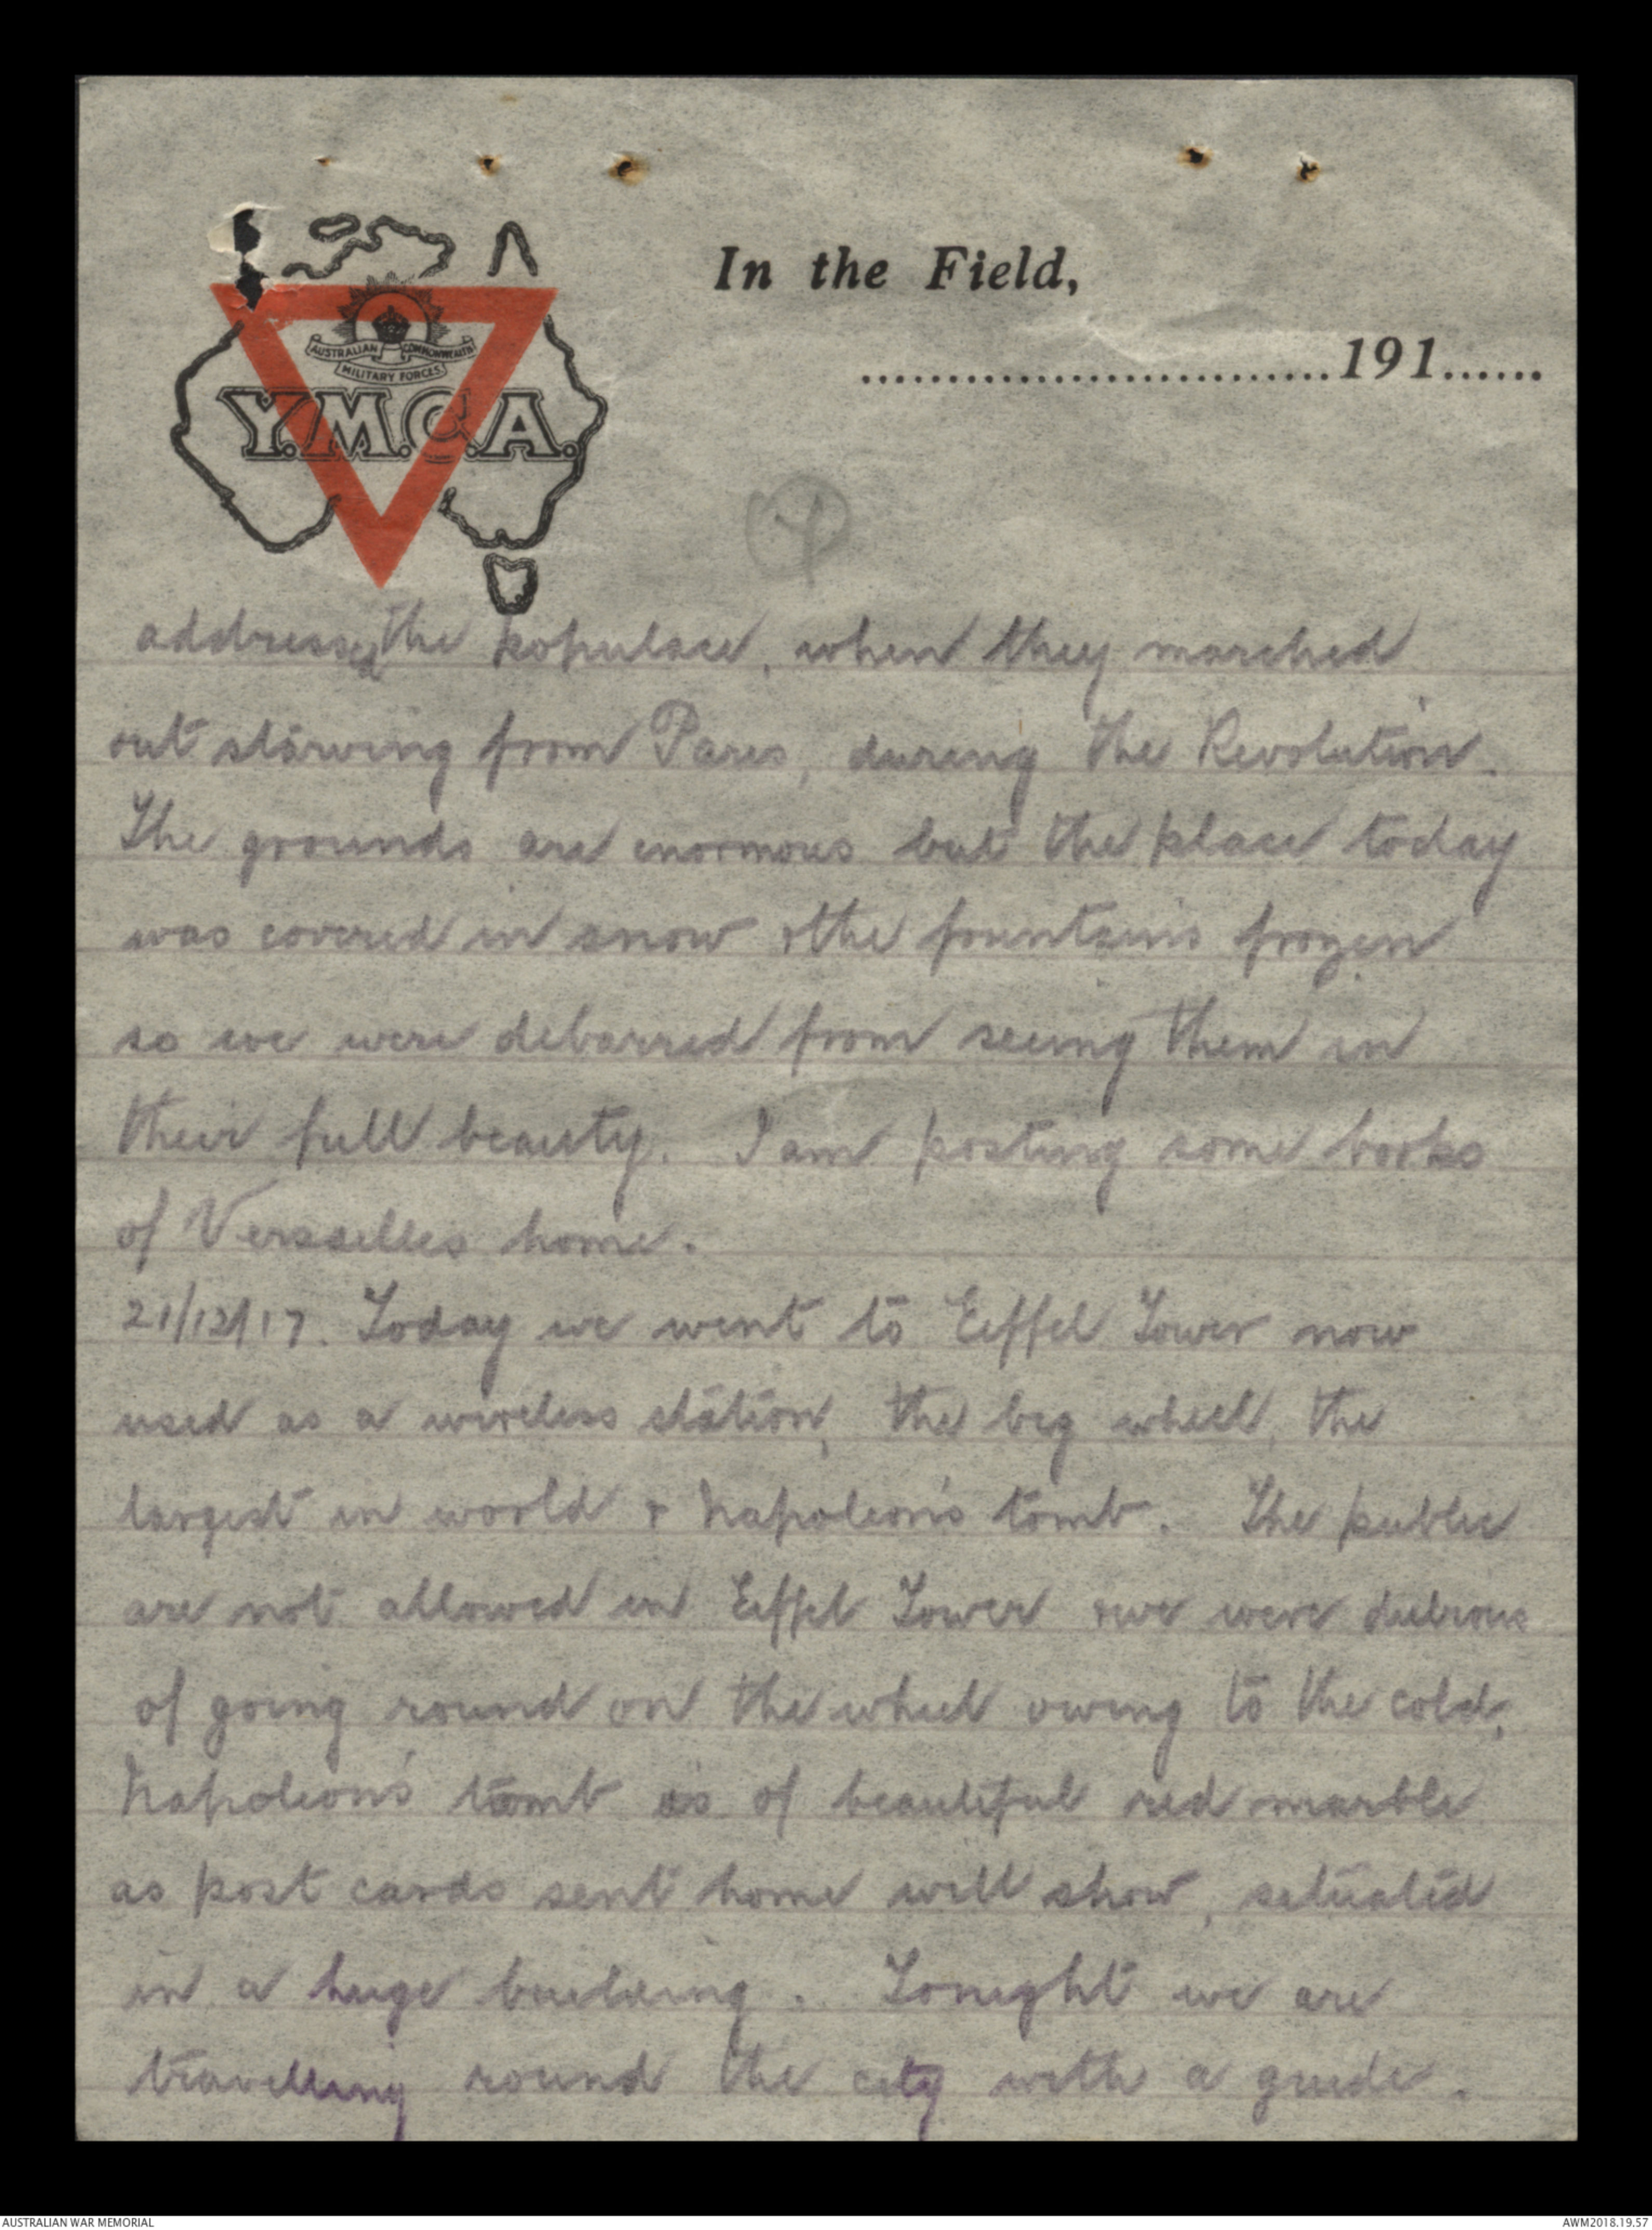 In the Field,
..............................191......
AUSTRALIAN COMMONWEALTH
MILITARY FORCES
Y.M.C.A.
addressed the populace, when they marched
out starving from Paris, during the Revolution.
The grounds are enormous but the place today
was covered in snow & the fountains frozen
so we were debarred from seeing them in
their full beauty. I am posting some books
of Versselles home.
21/12/17. Today we went to Eiffel Tower now
used as a wireless station, the big wheel, the
largest in world & Napoleon's tomb. The public
are not allowed in Eiffel Tower & we were dubious
of going round on the wheel owing to the cold.
Napoleon's tomb is of beautiful red marble
as post cards sent home will show, situated
in a huge building. Tonight we are
travelling round the city with a guide.
AUSTRALIAN WAR MEMORIAL
AWM2018.19.57